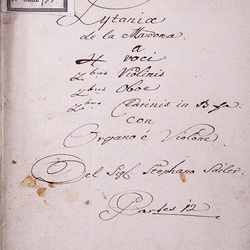 Lytaniæ
de la Madona
a
4 voci
2bus Violinis
2bus Oboe
2bus Clarinis in B fa
con
Organo é Violone
Del Sigl Stephano Sailer
Partes 12